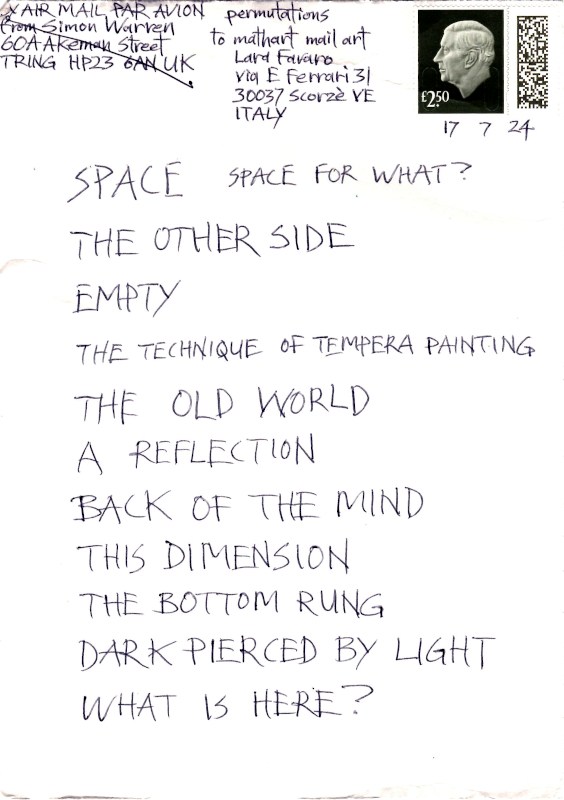 X AIR MAIL PAR AVION
from Simon Warren
60A Akeman Street
TRING HP23 6AN UK
permutations
to mathart mail art
Lara Favaro
via E Ferrari 31
30037 Scorzè VE
ITALY
£2.50
17 7 24
SPACE SPACE FOR WHAT?
THE OTHER SIDE
EMPTY
THE TECHNIQUE OF TEMPERA PAINTING
THE OLD WORLD
A REFLECTION
BACK OF THE MIND
THIS DIMENSION
THE BOTTOM RUNG
DARK PIERCED BY LIGHT
WHAT IS HERE?